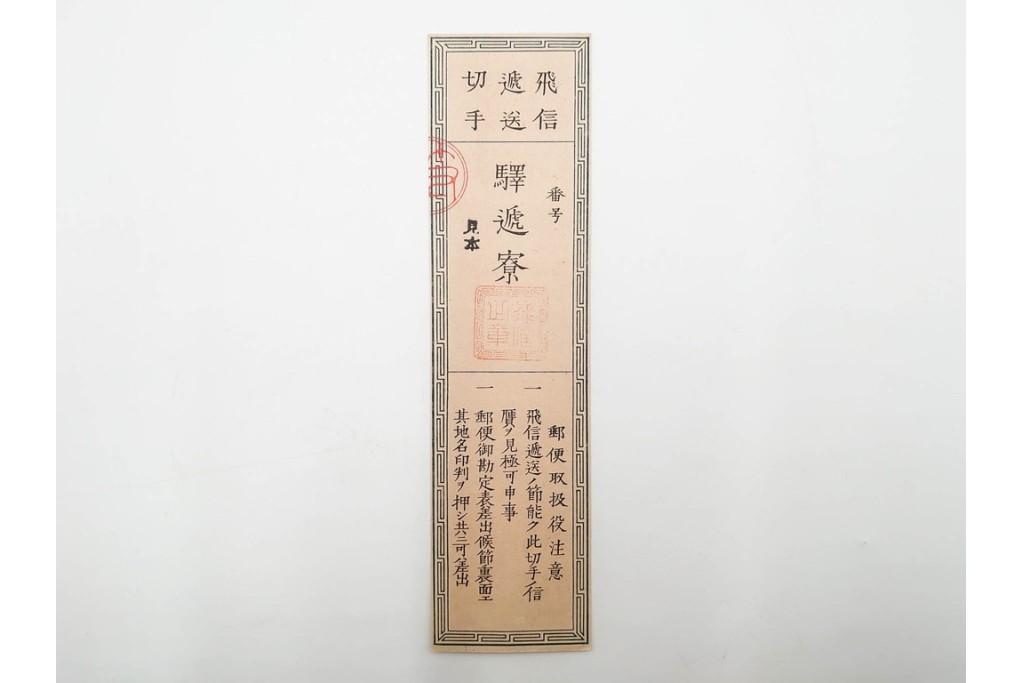 飛信
逓送
切手
番号
驛逓寮
見本
郵便取扱役注意
一 飛信遞送ノ節能ク此切手ノ信
贋ヲ見極可申事
一 郵便御勘定表差出候節裏面エ
其地名印判ヲ押シ共ニ可差出